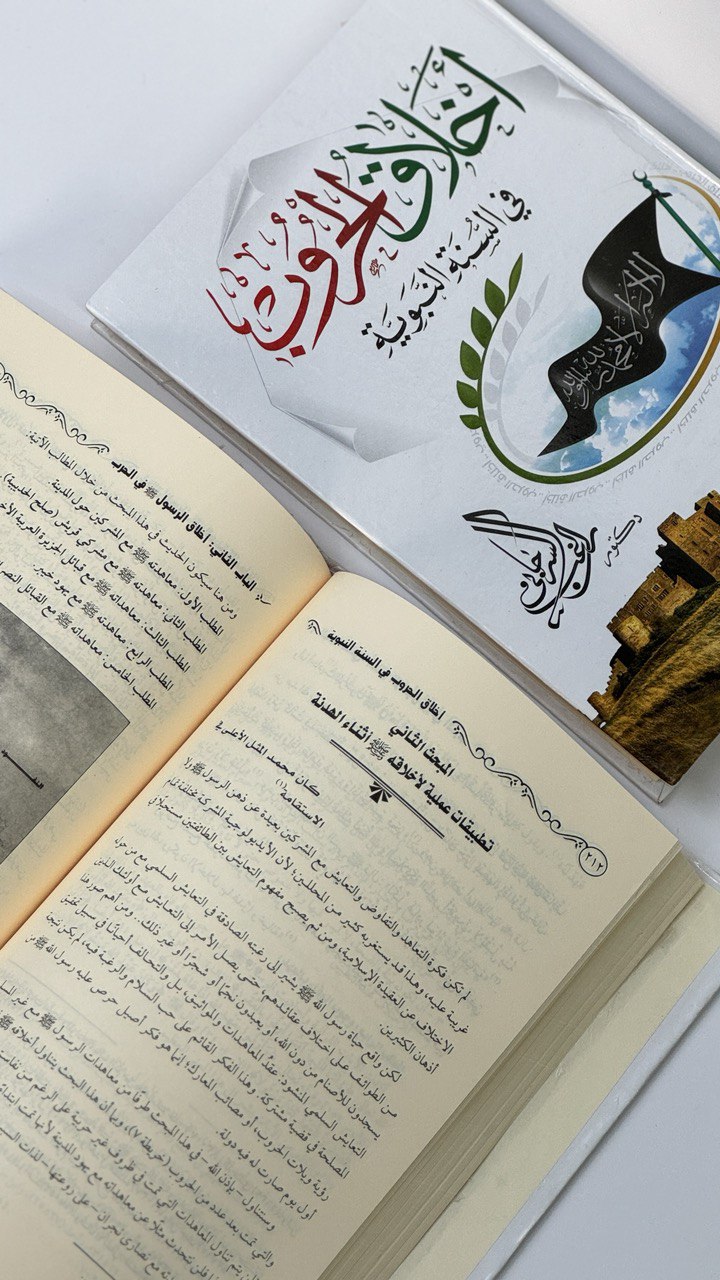 أخلاق
الحروب
في السُّنَّة النَّبَوِيَّة
لا إله إلا الله
محمد رسول الله
دكتور
راغب السرجاني
الباب الثاني: أخلاق الرسول ﷺ في الحروب
ومن هنا سيكون الحديث في هذا المبحث من خلال المطالب الآتية:
المطلب الأول: معاهداته ﷺ مع المشركين حول المدينة.
المطلب الثاني: معاهداته ﷺ مع مشركي قريش (صلح الحديبية)
المطلب الثالث: معاهداته ﷺ مع قبائل الجزيرة العربية
المطلب الرابع: معاهداته ﷺ مع يهود خيبر.
المطلب الخامس: معاهداته ﷺ مع القبائل
٢١٢
أخلاق الحروب في السنة النبوية
المبحث الثاني
تطبيقات عملية لأخلاقه ﷺ أثناء الهدنة
كان محمد المثل الأعلى في
الاستقامة(١)
لم تكن فكرة التعاهد والتفاوض والتعايش مع المشركين بعيدة عن ذهن الرسول ﷺ ولا
غريبة عليه، وهذا قد يستغربه كثير من المحللين؛ لأن الأيديولوجية المشركة مختلفة تمام
الاختلاف عن العقيدة الإسلامية، ومن ثم يصبح مفهوم التعايش بين الطائفتين مستحيلاً في
أذهان الكثيرين
لكن واقع حياة رسول الله ﷺ يشير إلى رغبته الصادقة في التعايش السلمي مع من حوله
من الطوائف على اختلاف عقائدهم؛ حتى يصل الأمر إلى التعايش مع أولئك الذين
يسجدون للأصنام من دون الله، أو يعبدون نجمًا أو شجرًا أو غير ذلك.. ومن أهم صور هذا
التعايش السلمي المنشود: عقدُ المعاهدات والمواثيق، بل والتحالف أحيانًا في سبيل تحقيق
المصلحة في قضية مشتركة. وهذا الفكر القائم على حب السلام والرغبة فيه، لم يكن نتيجة
رؤية ويلات الحروب، أو مصائب المعارك؛ إنما هو فكر أصيل حرص عليه رسول الله ﷺ من
أول يوم صارت له فيه دولة
وسنتناول - بإذن الله - في هذا المبحث طرفًا من معاهدات الرسول ﷺ مع غير
والتي تمت بعد عدد من الحروب (خريطة ٧)، وبما أن هذا البحث يتناول أخلاقه ﷺ
فلن يتم تناول المعاهدات التي تمت في ظروف غير حربية على الرغم من
فلن نتحدث مثلًا عن معاهداته مع يهود المدينة لأنها تمت
مع نصارى نجران - على روعتها - لذات